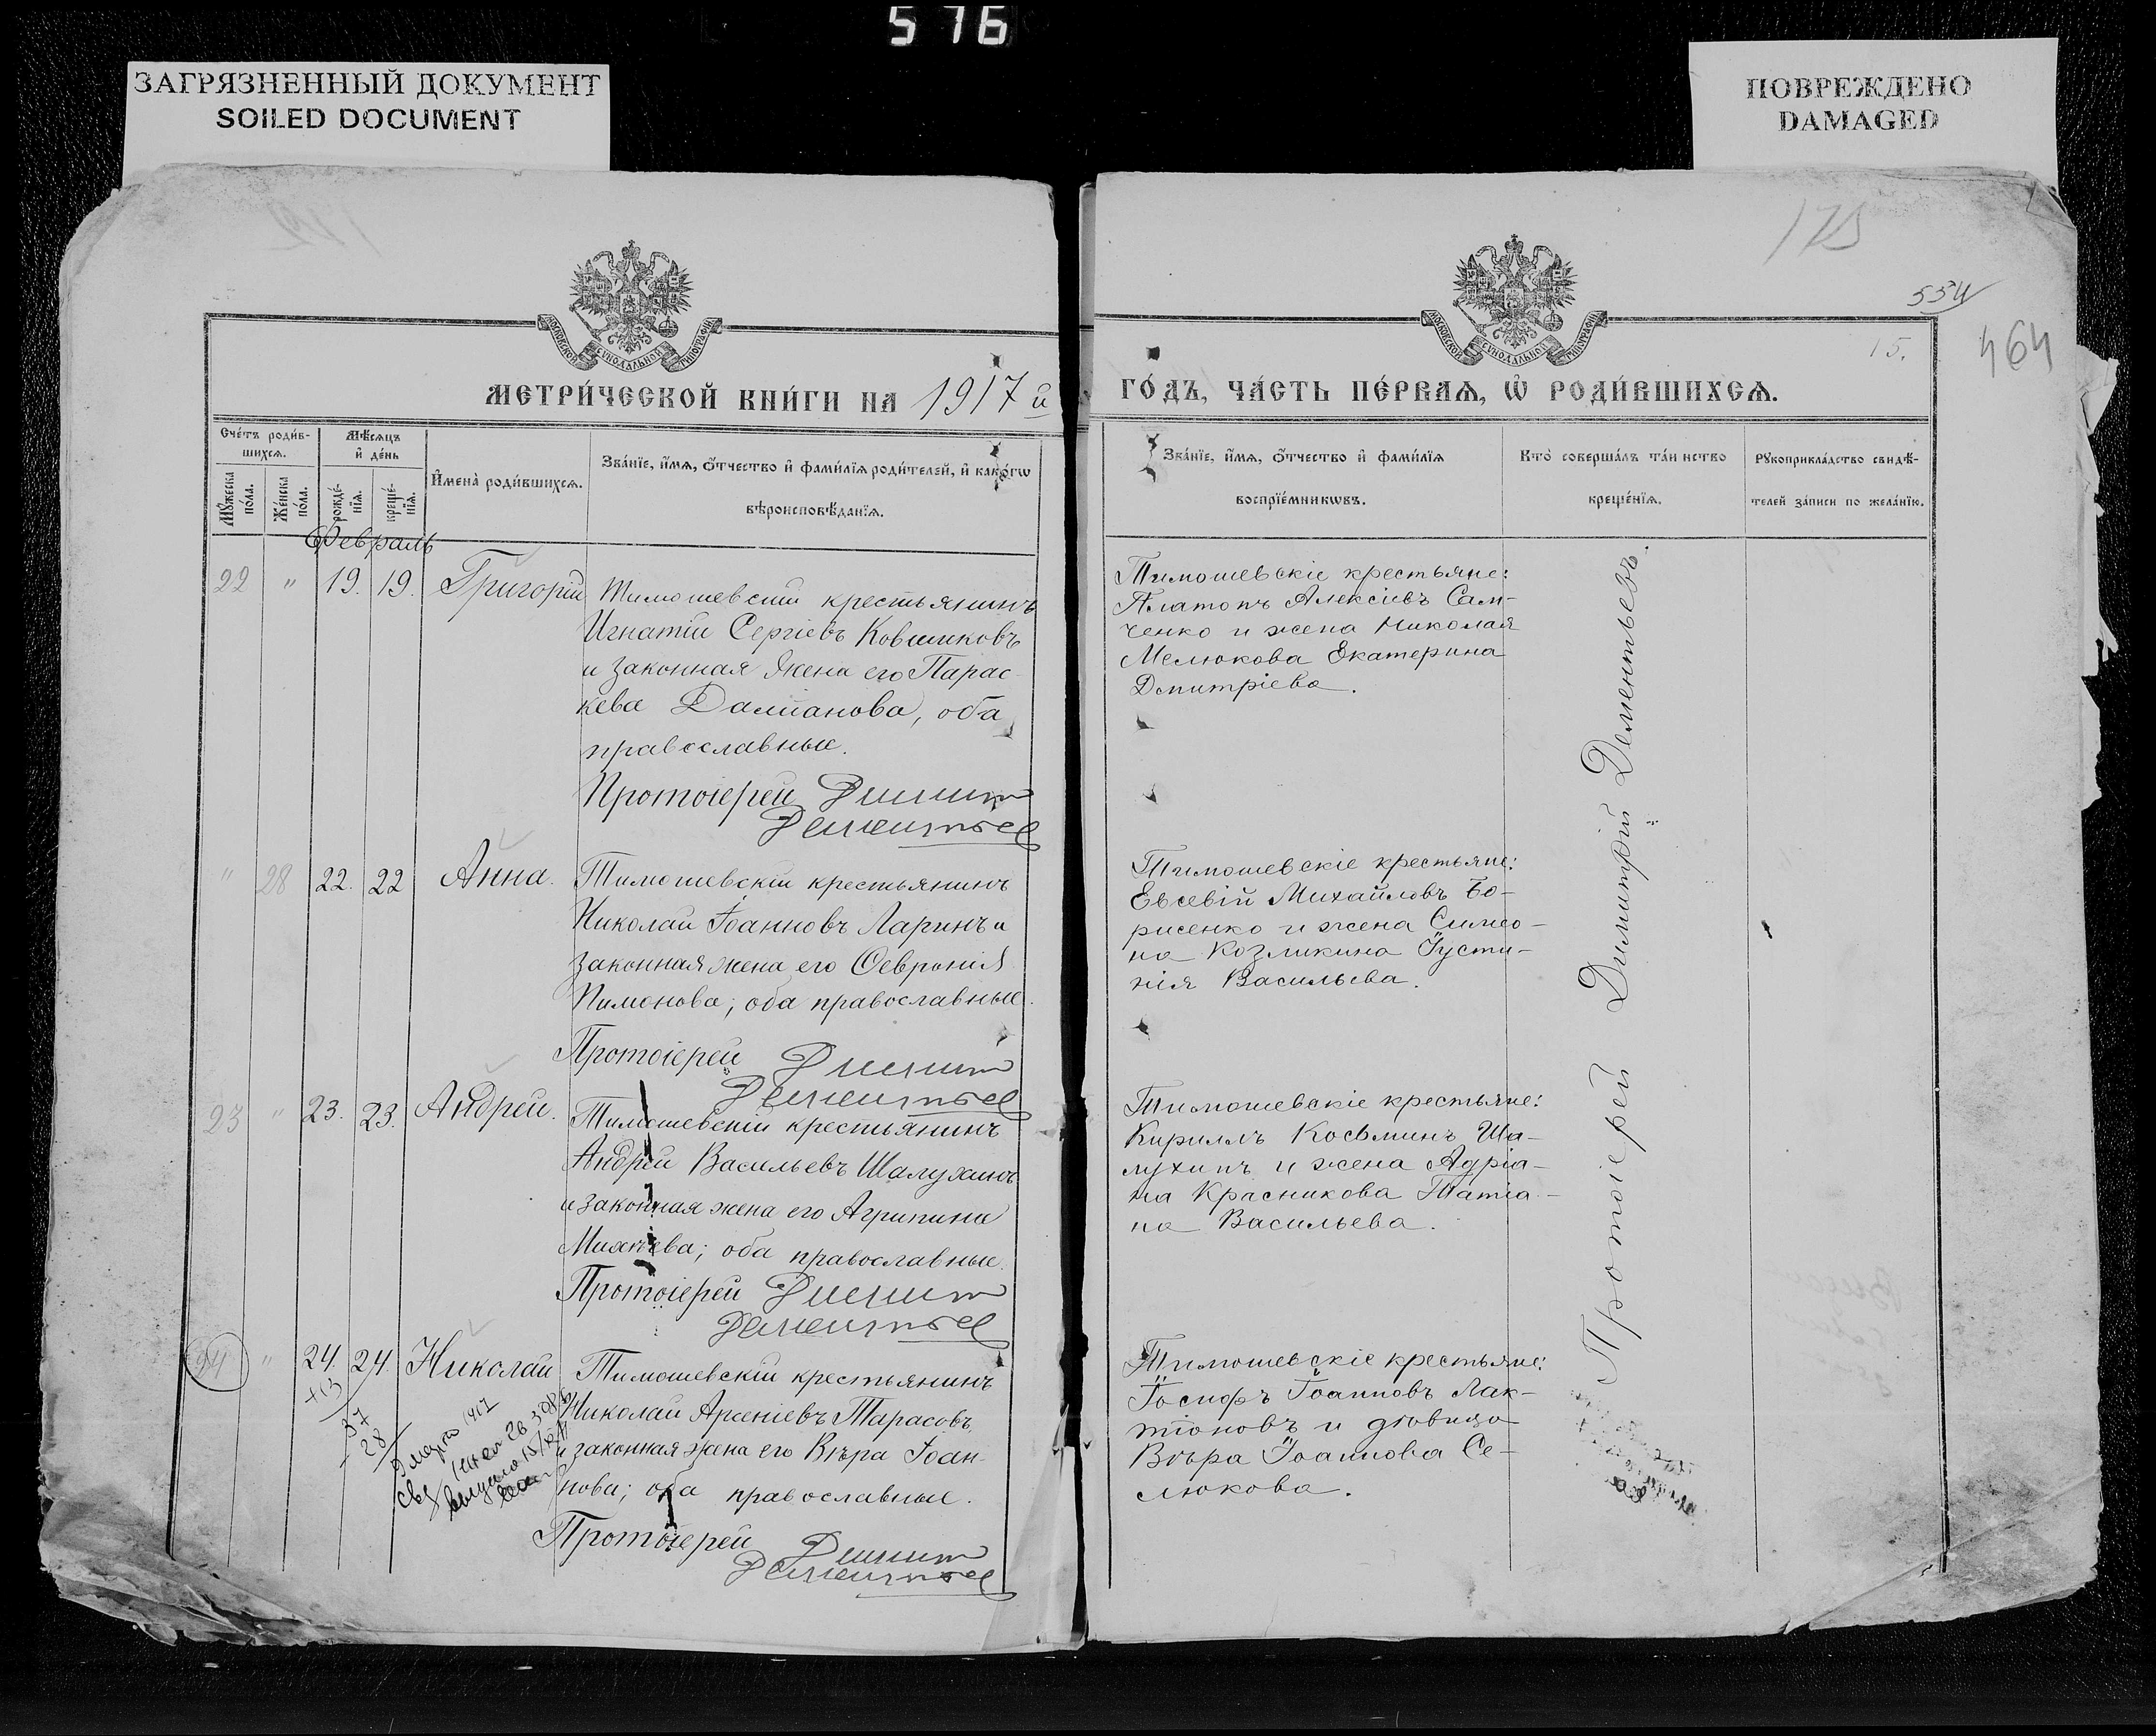 576
ЗАГРЯЗНЕННЫЙ ДОКУМЕНТ
SOILED DOCUMENT
ПОВРЕЖДЕНО
DAMAGED
175
554
464
15.
МОСКОВСКОЙ СѴНОДАЛЬНОЙ ТИПОГРАФІИ
МОСКОВСКОЙ СѴНОДАЛЬНОЙ ТИПОГРАФІИ
МЕТРИ́ЧЕСКОЙ КНИ́ГИ НА 1917 й
ГО́ДЪ, ЧА́СТЬ ПЕ́РВАѦ, Ѡ҆ РОДИ́ВШИХСѦ.
Сче́тъ роди́в-
шихсѧ.
Мꙋ́жеска
по́ла.
Же́нска
по́ла.
Мѣ́сѧцъ
и҆ де́нь
рожде́-
нїѧ.
креще́-
нїѧ.
И҆мена̀ роди́вшихсѧ.
Зва́нїе, и҆́мѧ, ѻ҆́тчество и҆ фами́лїѧ роди́телей, и҆ како́гѡ
вѣроисповѣ́данїѧ.
Зва́нїе, и҆́мѧ, ѻ҆́тчество и҆ фами́лїѧ
воспрїе́мникѡвъ.
Кто̀ соверша́лъ та́инство
креще́нїѧ.
Рꙋкоприкла́дство свидѣ́-
телей за́писи по жела́нїю.
Февраль
22 " 19. 19. Григорій
Тимошевскій крестьянинъ
Игнатій Сергіевъ Ковшиковъ
и законная жена его Парас-
кева Даміанова, оба
православные.
Протоіерей Димит
Дементьев
Тимошевскіе крестьяне:
Платонъ Алексіевъ Сам-
ченко и жена Николая
Мелюкова Екатерина
Дмитріева.
" 28 22. 22 Анна.
Тимошевскій крестьянинъ
Николай Іоанновъ Ларинъ и
законная жена его Февронія
Пимонова; оба православные.
Протоіерей Димит
Дементьев
Тимошевскіе крестьяне:
Евсевій Михайловъ Бо-
рисенко и жена Симео-
на Козликина Іусти-
нія Васильева.
23 " 23. 23. Андрей.
Тимошевскій крестьянинъ
Андрей Васильевъ Шалухинъ
и законная жена его Агрипина
Михеева; оба православные.
Протоіерей Димит
Дементьев
Тимошевскіе крестьяне:
Кириллъ Косьминъ Ша-
лухинъ и жена Адріа-
на Красникова Татіа-
на Васильева.
24 " 24. 24. Николай
+13
37
-28
9 марта 1917
Тимошевскій крестьянинъ
Николай Арсеніевъ Тарасовъ
и законная жена его Вѣра Іоан-
нова; оба православные.
Протоіерей Димит
Дементьев
Тимошевскіе крестьяне:
Іосифъ Іоанновъ Лак-
тіоновъ и дѣвица
Вѣра Іоаннова Се-
люкова.
Протоіерей Димитрій Дементьевъ.